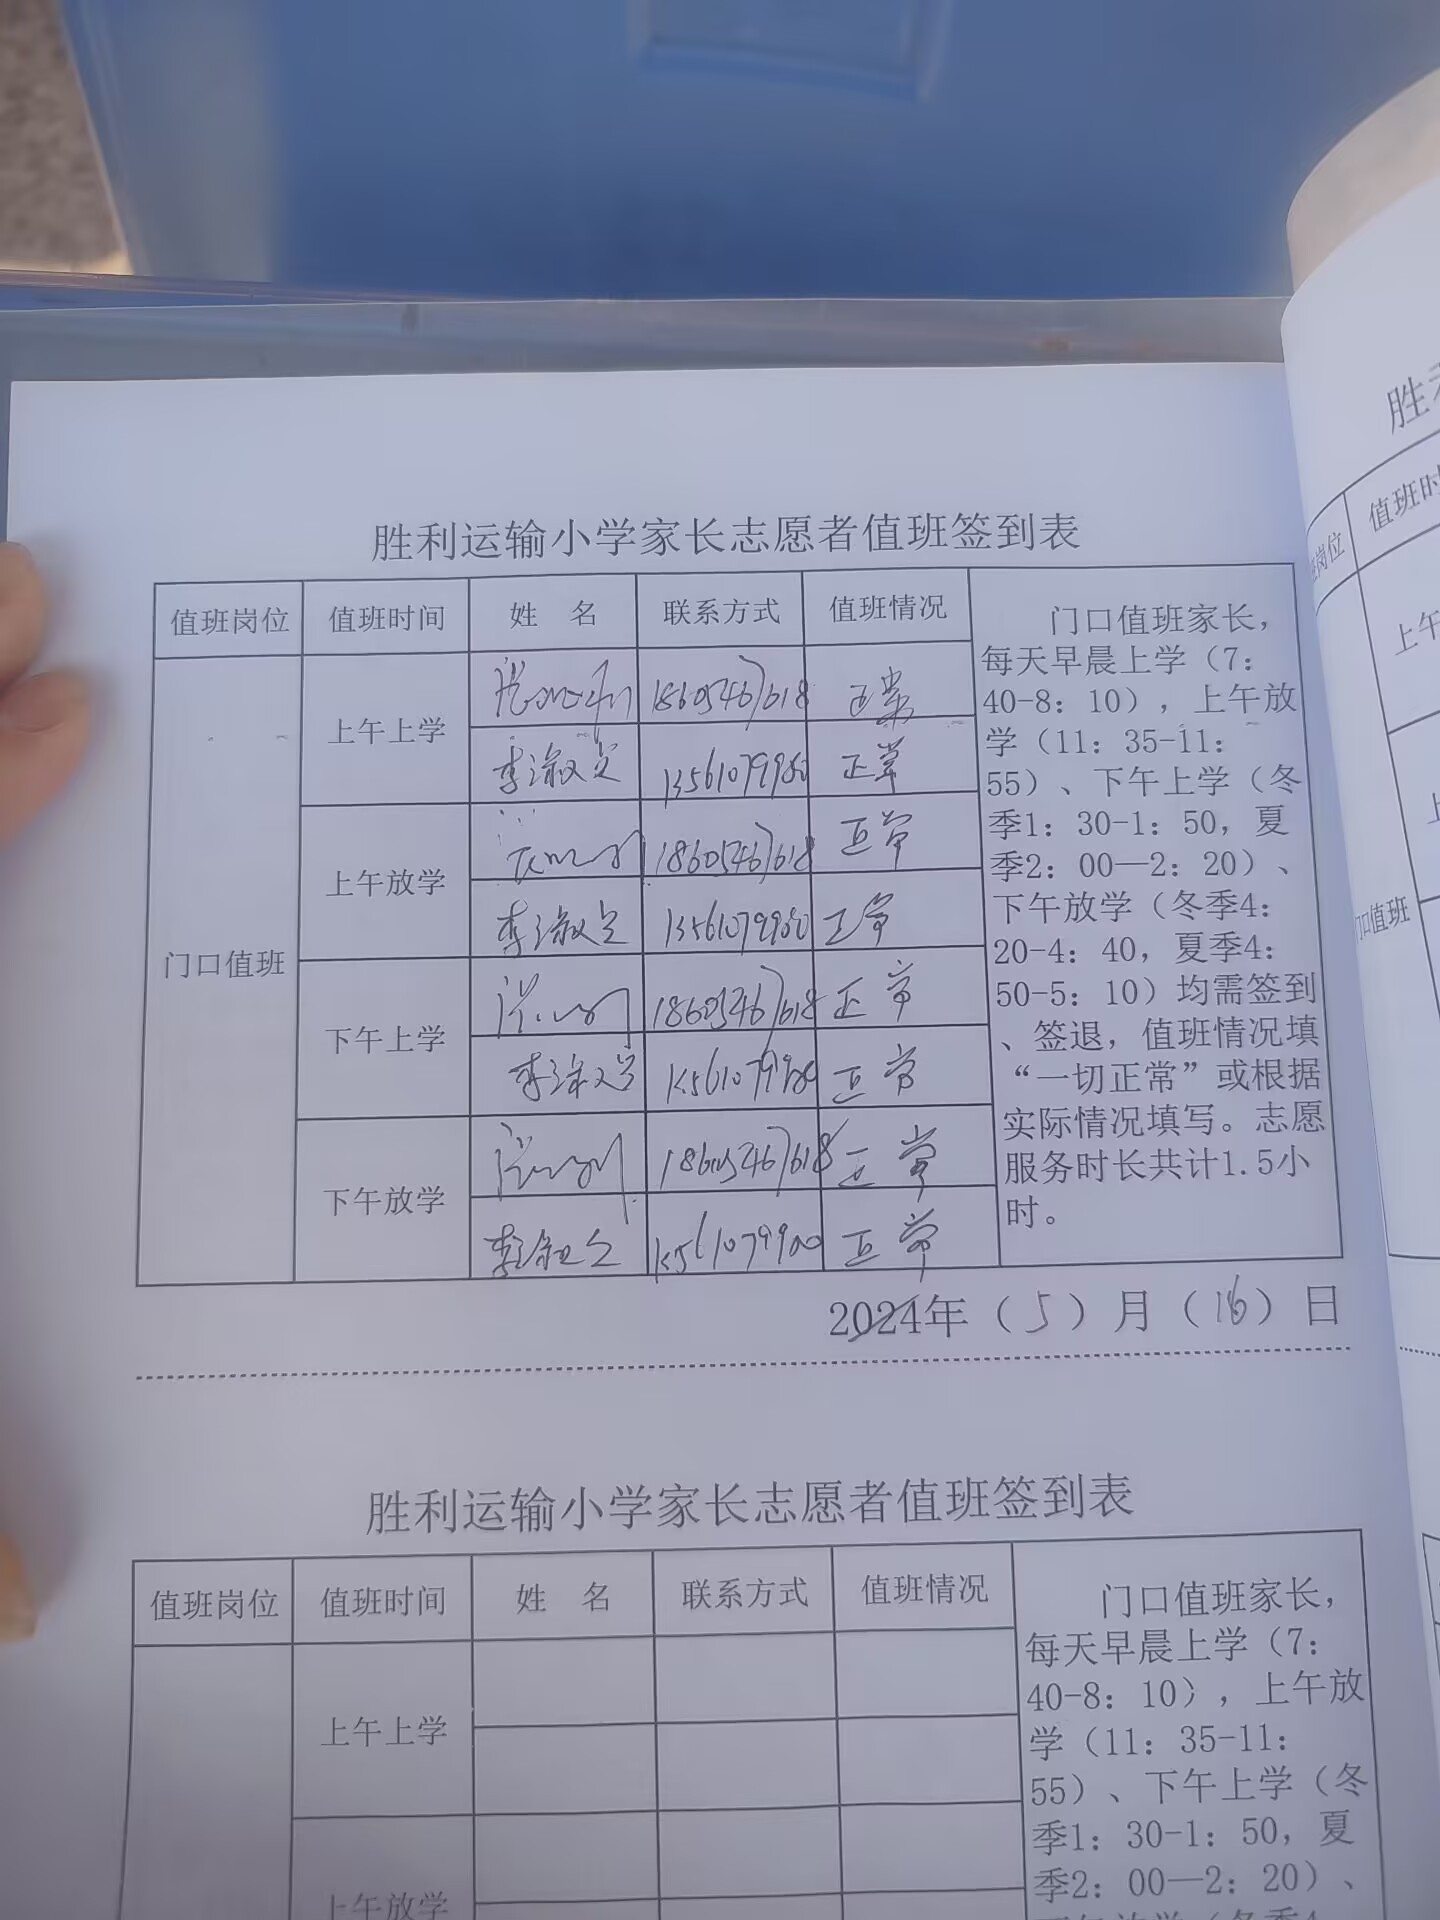 胜利运输小学家长志愿者值班签到表
值班岗位 值班时间 姓 名 联系方式 值班情况
门口值班
上午上学 18605467618 正常
李淑 13561079980 正常
上午放学 18605467618 正常
李淑 13561079980 正常
下午上学 18605467618 正常
李淑 13561079980 正常
下午放学 18605467618 正常
李淑 正常
门口值班家长，
每天早晨上学（7：
40-8：10），上午放
学（11：35-11：
55）、下午上学（冬
季1：30-1：50，夏
季2：00—2：20）、
下午放学（冬季4：
20-4：40，夏季4：
50-5：10）均需签到
、签退，值班情况填
“一切正常”或根据
实际情况填写。志愿
服务时长共计1.5小
时。
2024年（5）月（16）日
胜利运输小学家长志愿者值班签到表
值班岗位 值班时间 姓 名 联系方式 值班情况
上午上学
上午放学
门口值班家长，
每天早晨上学（7：
40-8：10），上午放
学（11：35-11：
55）、下午上学（冬
季1：30-1：50，夏
季2：00—2：20）、
胜
岗位 值班时
上午
口值班